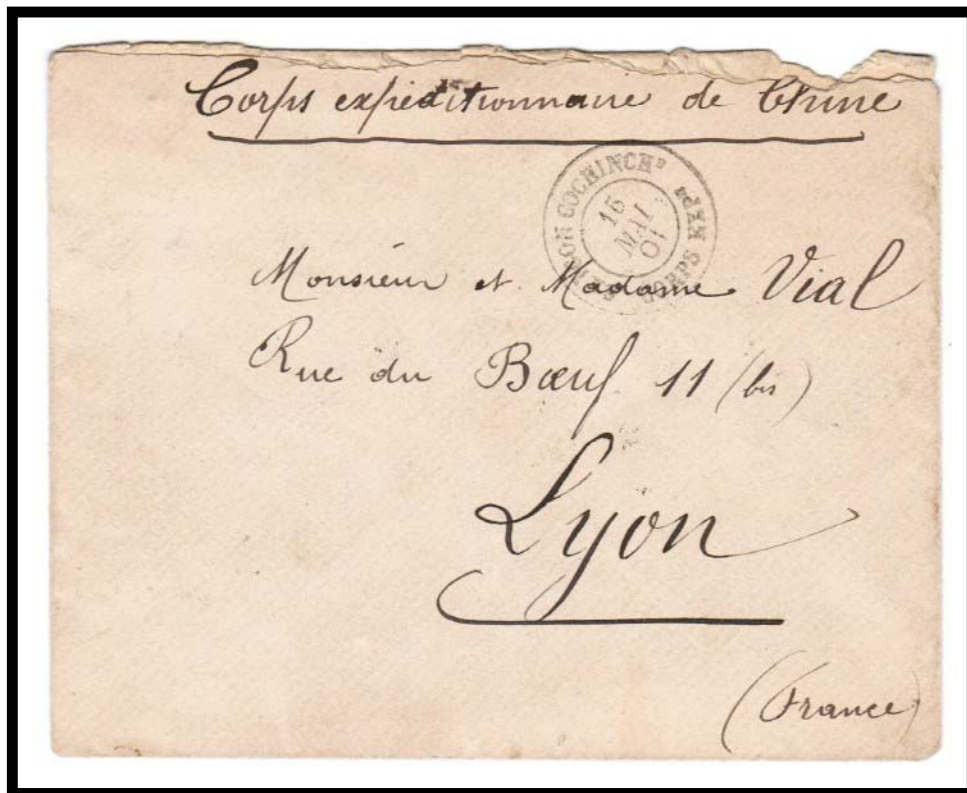 Corps expéditionnaire de Chine
COCHINCHE
15
MAI
01
CORPS
Monsieur et Madame Vial
Rue du Bœuf 11 (bis)
Lyon
(France)